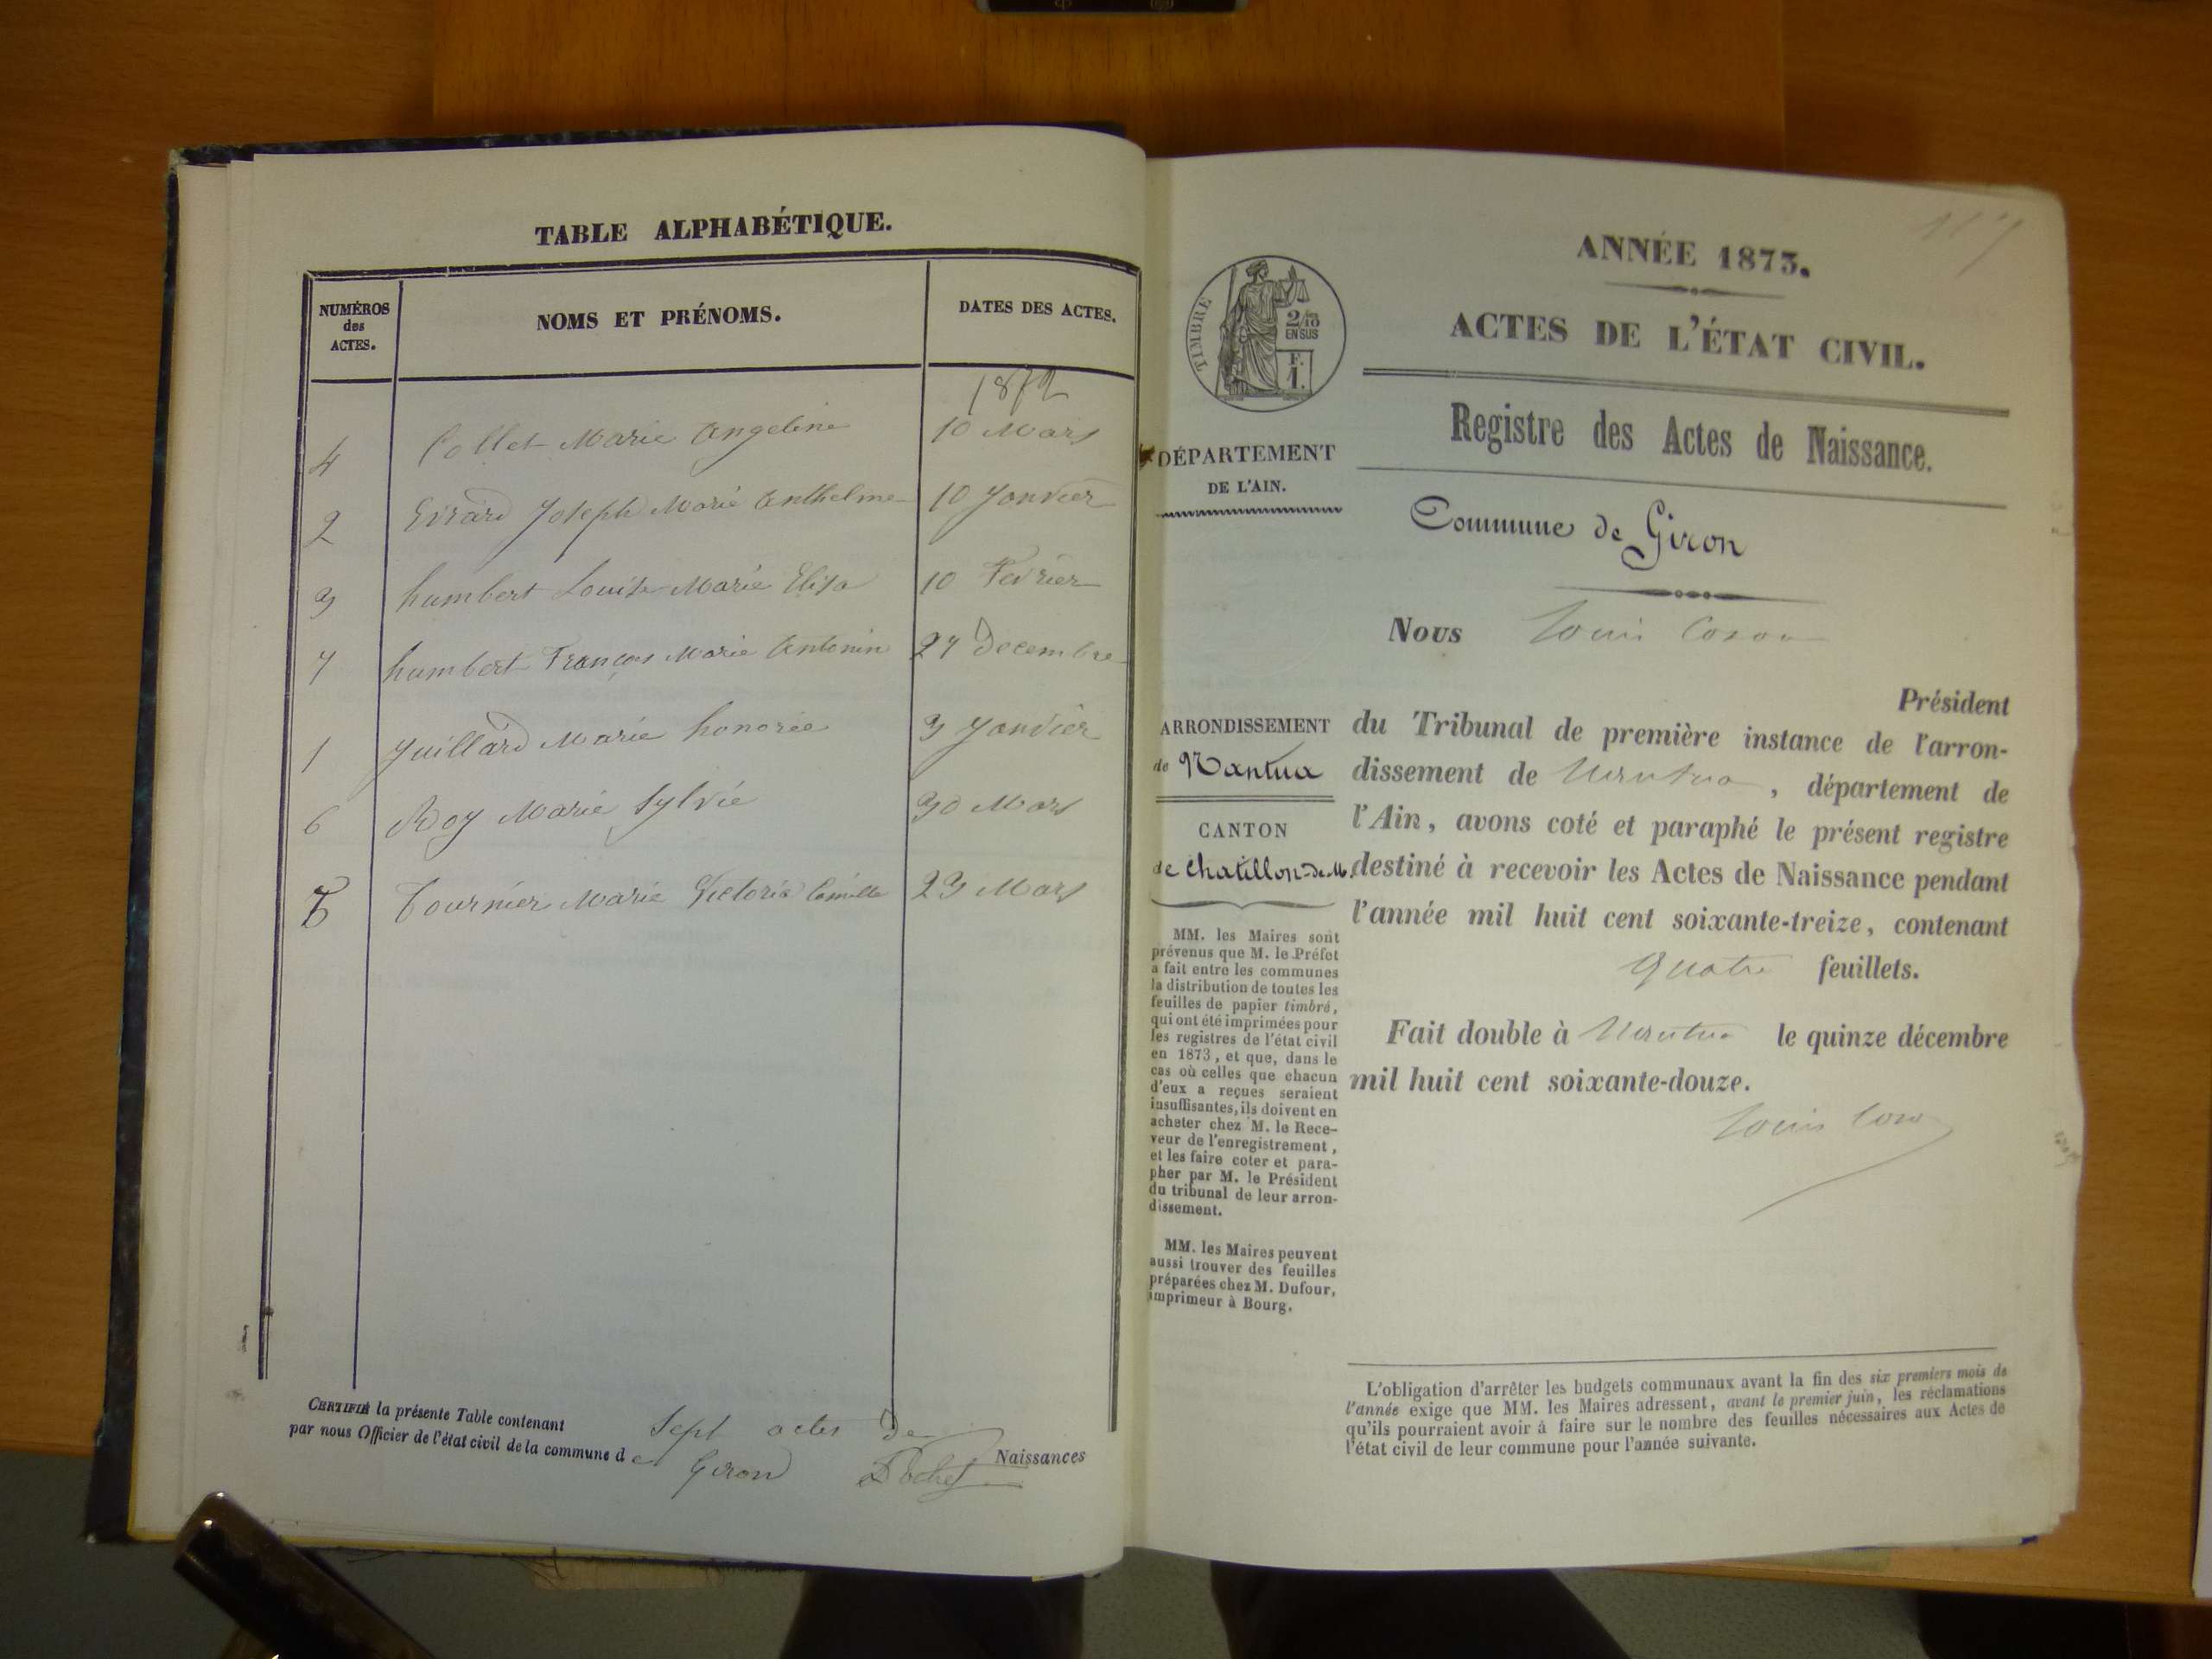 TABLE ALPHABÉTIQUE.
NUMÉROS
des
ACTES.
NOMS ET PRÉNOMS.
DATES DES ACTES.
1872
4 Collet Marie Angeline 10 Mars
2 Evrard Joseph Marie Anthelme 10 Janvier
3 humbert Louise Marie Elisa 10 Fevrier
7 humbert François Marie Antonin 27 Decembre
1 Juillard Marie honorée 3 Janvier
6 Roy Marie Sylvie 30 Mars
5 Tournier Marie Victoria Camille 23 Mars
CERTIFIÉ la présente Table contenant Sept actes De Naissances
par nous Officier de l'état civil de la commune de Giron
117
ANNÉE 1873.
ACTES DE L'ÉTAT CIVIL.
TIMBRE
2/10
EN SUS
F.
1.
Registre des Actes de Naissance.
DÉPARTEMENT
DE L'AIN.
Commune de Giron
Nous Louis
Président
ARRONDISSEMENT
de Nantua
CANTON
de Chatillon-de-M.
du Tribunal de première instance de l'arron-
dissement de Nantua, département de
l'Ain, avons coté et paraphé le présent registre
destiné à recevoir les Actes de Naissance pendant
l'année mil huit cent soixante-treize, contenant
quatre feuillets.
Fait double à Nantua le quinze décembre
mil huit cent soixante-douze.
Louis
MM. les Maires sont
prévenus que M. le Préfet
a fait entre les communes
la distribution de toutes les
feuilles de papier timbré,
qui ont été imprimées pour
les registres de l'état civil
en 1873, et que, dans le
cas où celles que chacun
d'eux a reçues seraient
insuffisantes, ils doivent en
acheter chez M. le Rece-
veur de l'enregistrement,
et les faire coter et para-
pher par M. le Président
du tribunal de leur arron-
dissement.
MM. les Maires peuvent
aussi trouver des feuilles
préparées chez M. Dufour,
imprimeur à Bourg.
L'obligation d'arrêter les budgets communaux avant la fin des six premiers mois de
l'année exige que MM. les Maires adressent, avant le premier juin, les réclamations
qu'ils pourraient avoir à faire sur le nombre des feuilles nécessaires aux Actes de
l'état civil de leur commune pour l'année suivante.